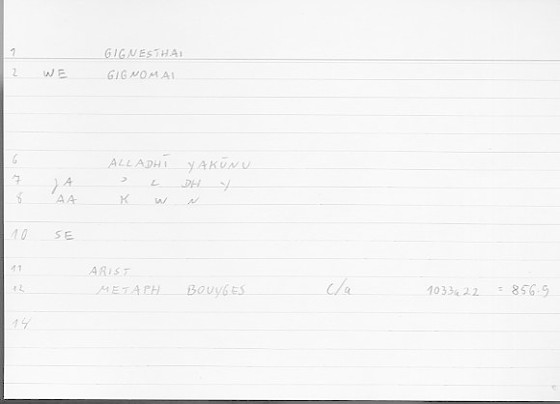 1 GIGNESTHAI
2 WE GIGNOMAI
6 ALLADHĪ YAKŪNU
7 JA ʾ L DH Y
8 AA K W N
10 SE
11 ARIST
12 METAPH BOUYGES C/a 1033a22 = 856.9
14